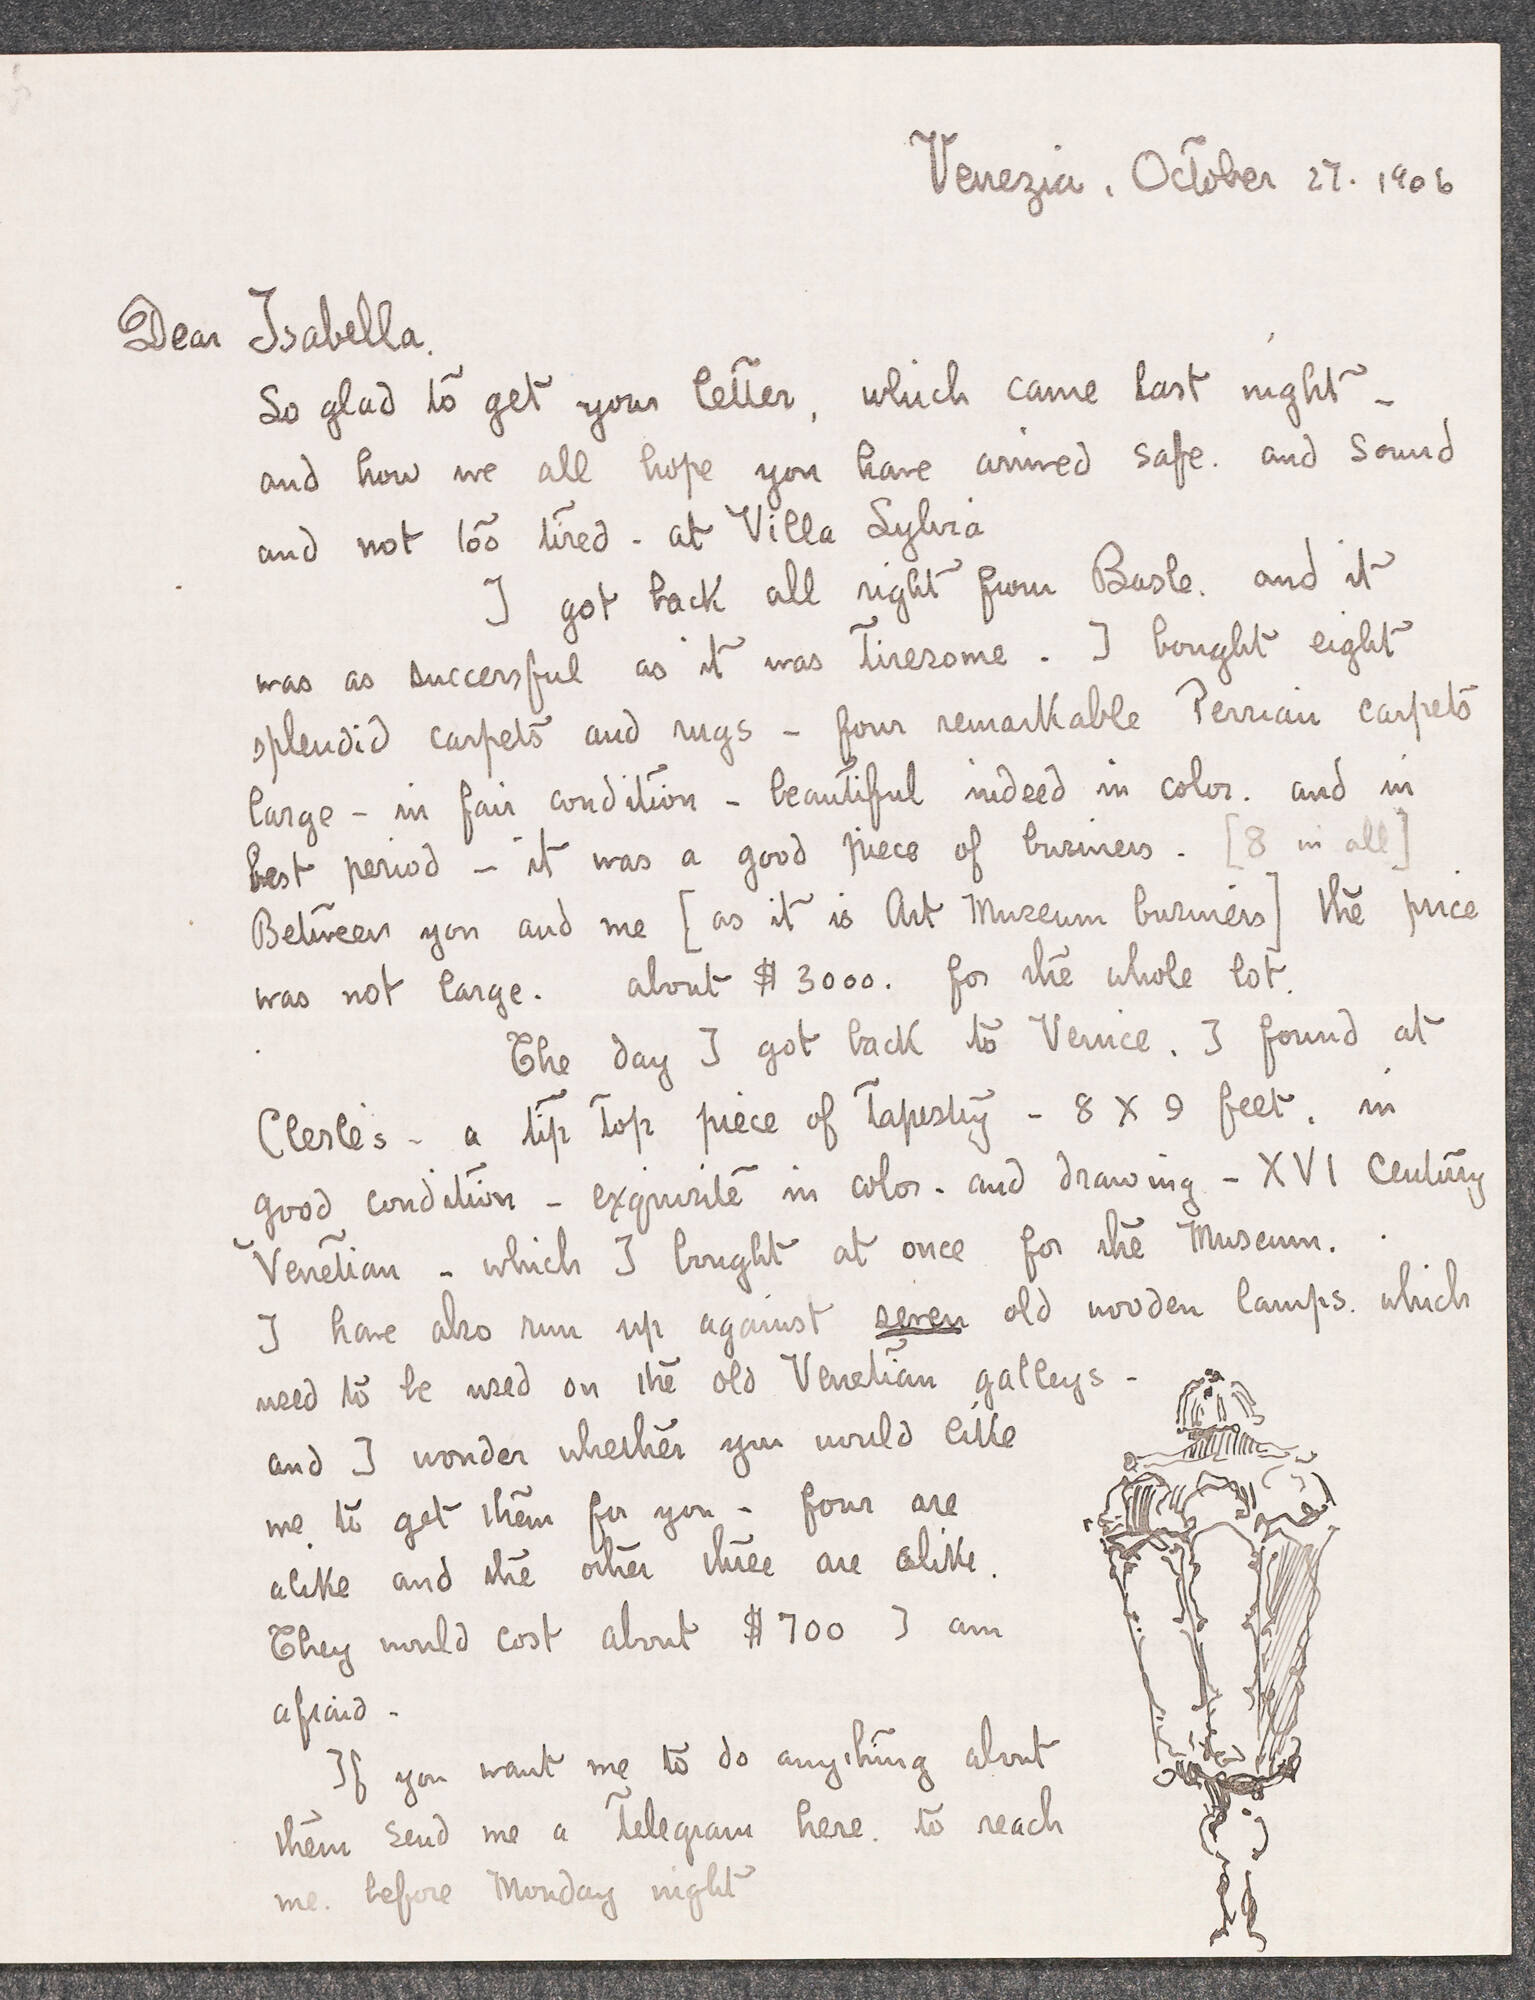 Venezia, October 27. 1906
Dear Isabella.
So glad to get your letter, which came last night -
and how we all hope you have arrived safe. and sound
and not too tired - at Villa Sylvia
I got back all right from Basle. and it
was as successful as it was tiresome. I bought eight
splendid carpets and rugs - four remarkable Persian carpets
large - in fair condition - beautiful indeed in color. and in
best period - it was a good piece of business. [8 in all]
Between you and me [as it is Art Museum business] the price
was not large. about $ 3000. for the whole lot.
The day I got back to Venice. I found at
Clerle's - a tip top piece of Tapestry - 8 X 9 feet. in
good condition - exquisite in color. and drawing - XVI Century
Venetian - which I bought at once for the Museum.
I have also run up against seven old wooden lamps. which
used to be used on the old Venetian galleys -
and I wonder whether you would like
me to get them for you - four are
alike and the other three are alike.
They would cost about $ 700 I am
afraid -
If you want me to do anything about
them send me a Telegram here. to reach
me. before Monday night